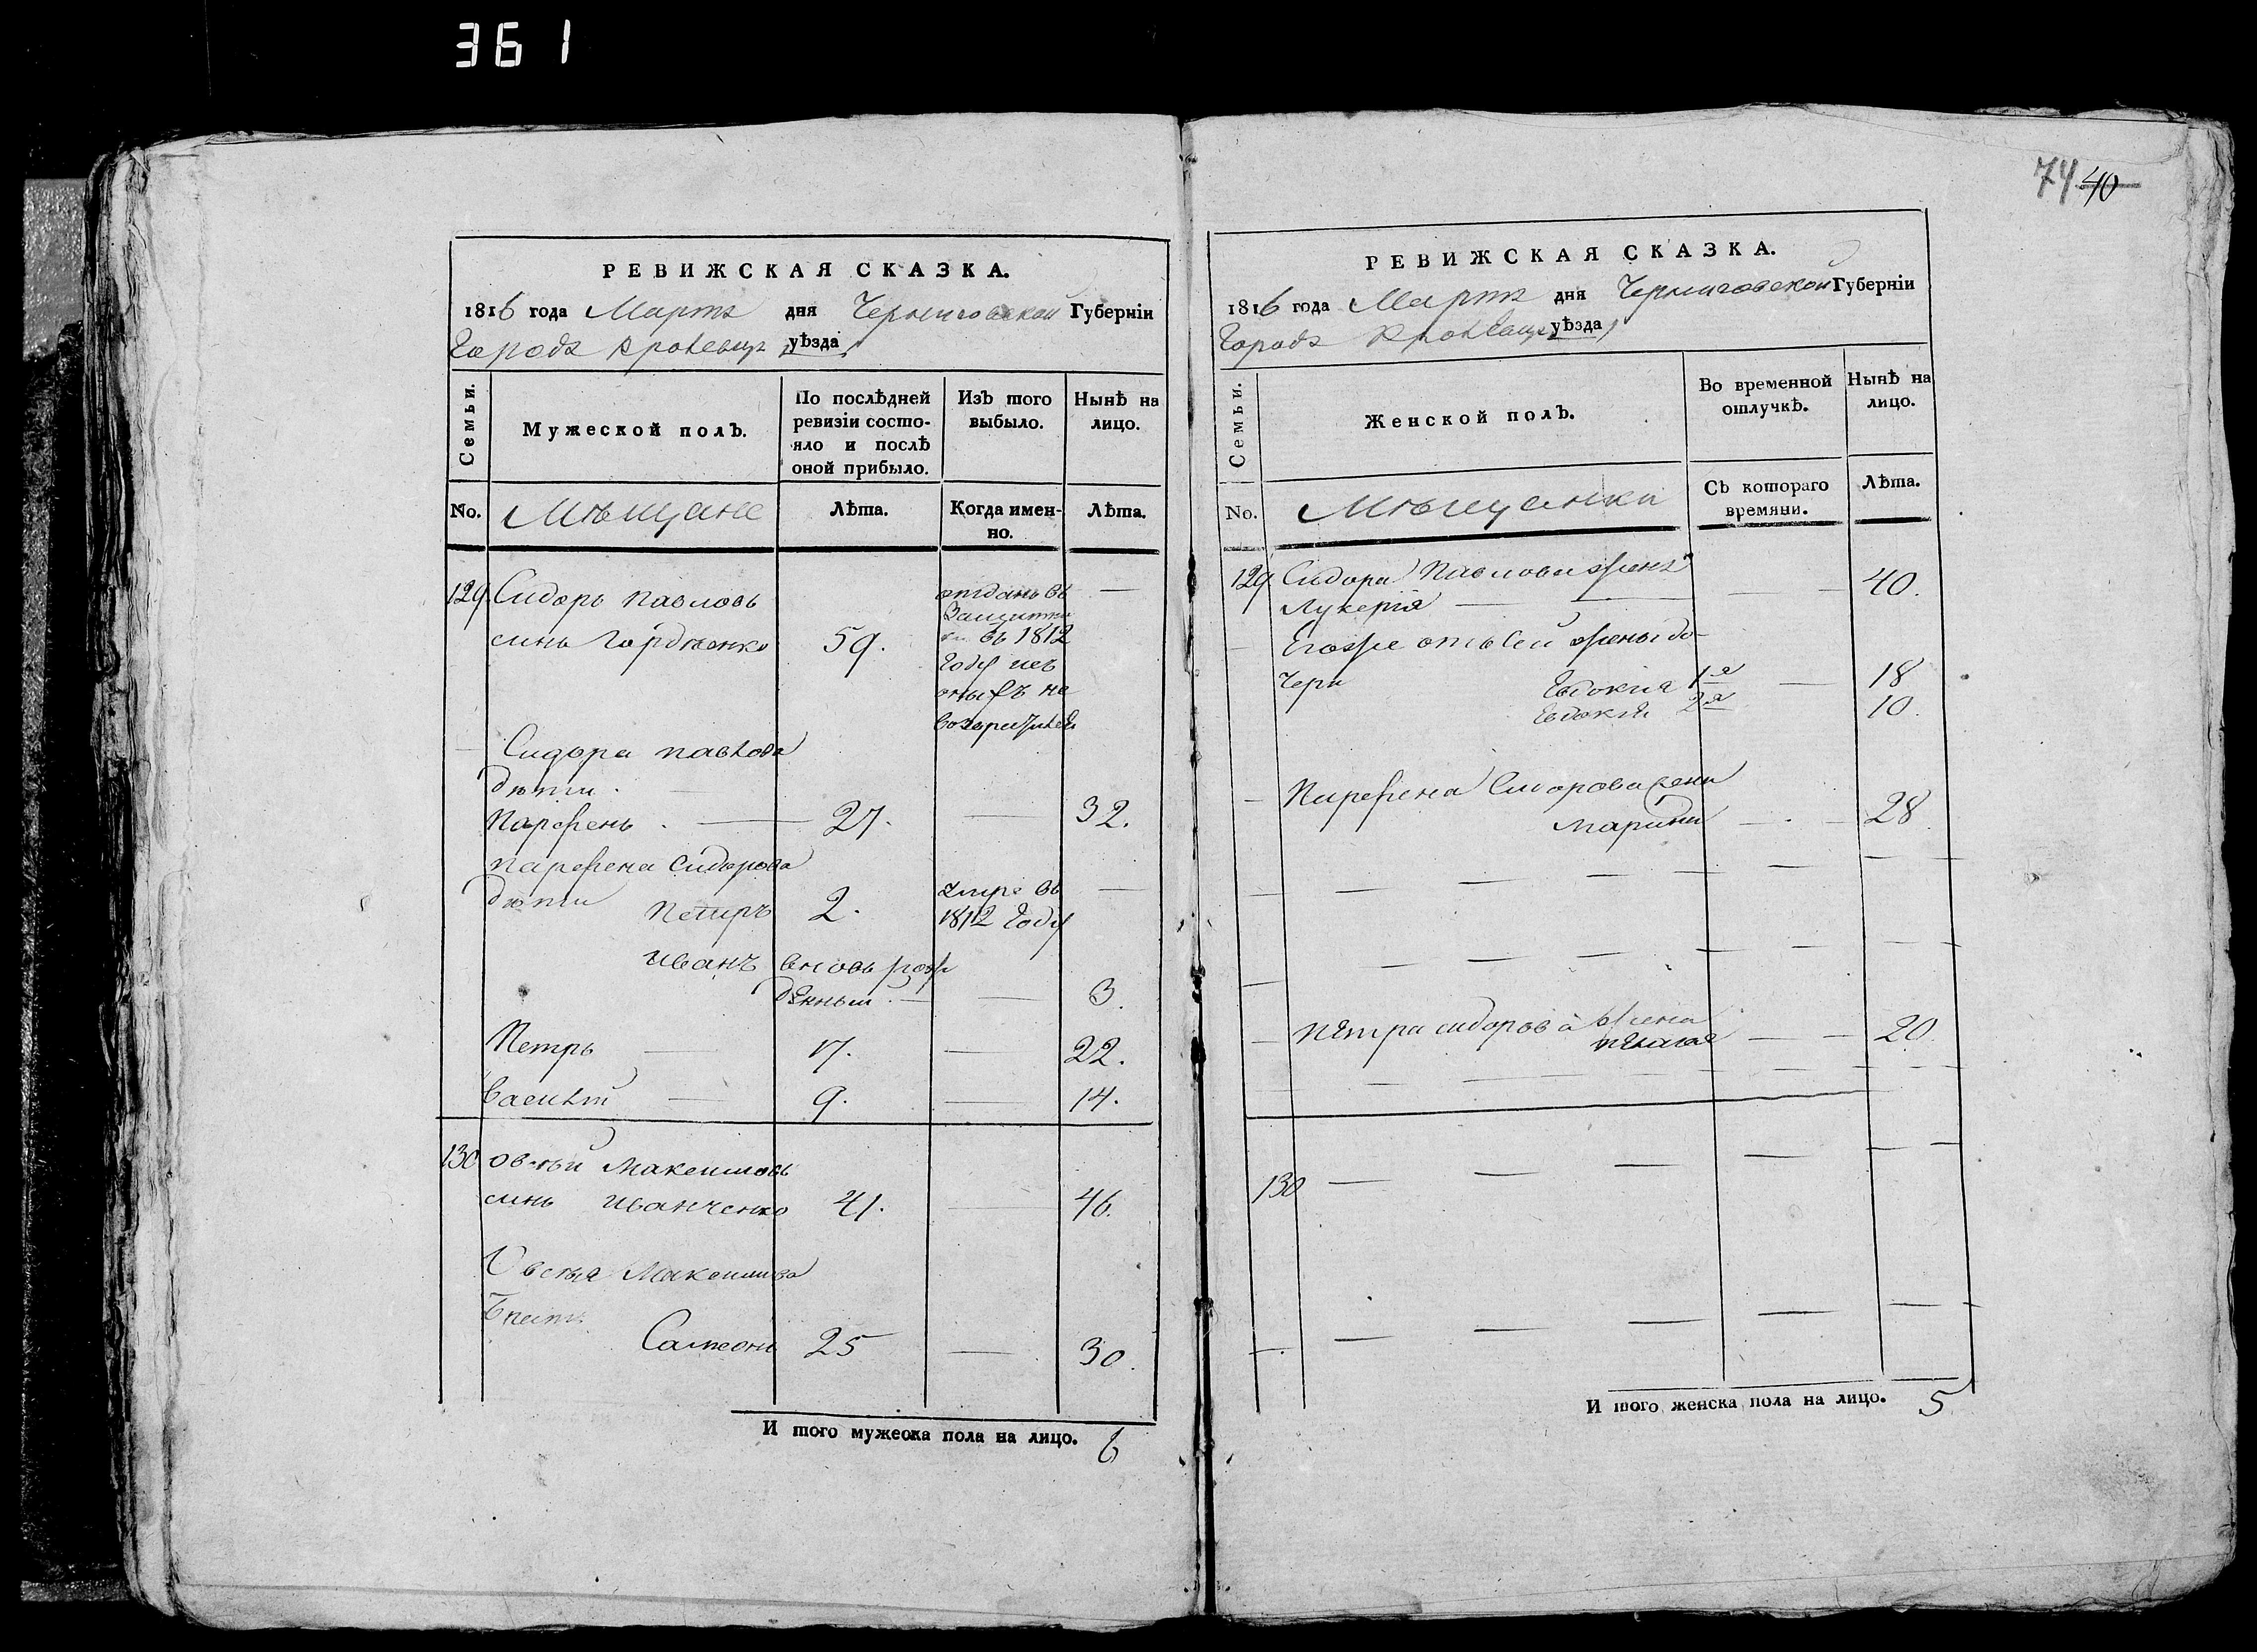 361
74 40
РЕВИЖСКАЯ СКАЗКА.
1816 года Марта дня Черниговской Губерніи
Города Кролевца уѣзда
Семьи.
Мужеской полъ.
По послѣдней ревизіи состояло и послѣ оной прибыло.
Изъ того выбыло.
Нынѣ на лицо.
No.
Мѣщане
Лѣта.
Когда именно.
Лѣта.
129. Сидоръ Павловъ отданъ въ —
синъ Гордѣенко 59. въ 1812
году изъ
оныхъ не
Сидора Павлова
дѣти.
Парфенъ. — 27. — 32.
Парфена Сидорова
дѣти Петръ 2. умре въ 1812 году —
Иванъ вновь рож
денный. — — 3.
Петръ — 17. — 22.
Василій — 9. — 14.
130 Овсѣй Максимовъ
синъ Иванченко 41. — 46.
Овсѣя Максимова
Самсонъ 25 — 30.
И того мужеска пола на лицо. 6
РЕВИЖСКАЯ СКАЗКА.
1816 года Марта дня Черниговской Губерніи
Города Кролевца уѣзда
Семьи.
Женской полъ.
Во временной отлучкѣ.
Нынѣ на лицо.
No.
Мѣщанки
Съ котораго времяни.
Лѣта.
129 Сидора Павлова жена
Лукерія — — — — 40.
Егоже отъ сей жены до-
чери Евдокія 1я — 18
Евдокія 2я 10.
— Парфена Сидорова жена
Марина — . — 28
— Петра Сидорова жена
Пелагея — — 20.
130 — — — — —
И того женска пола на лицо. 5